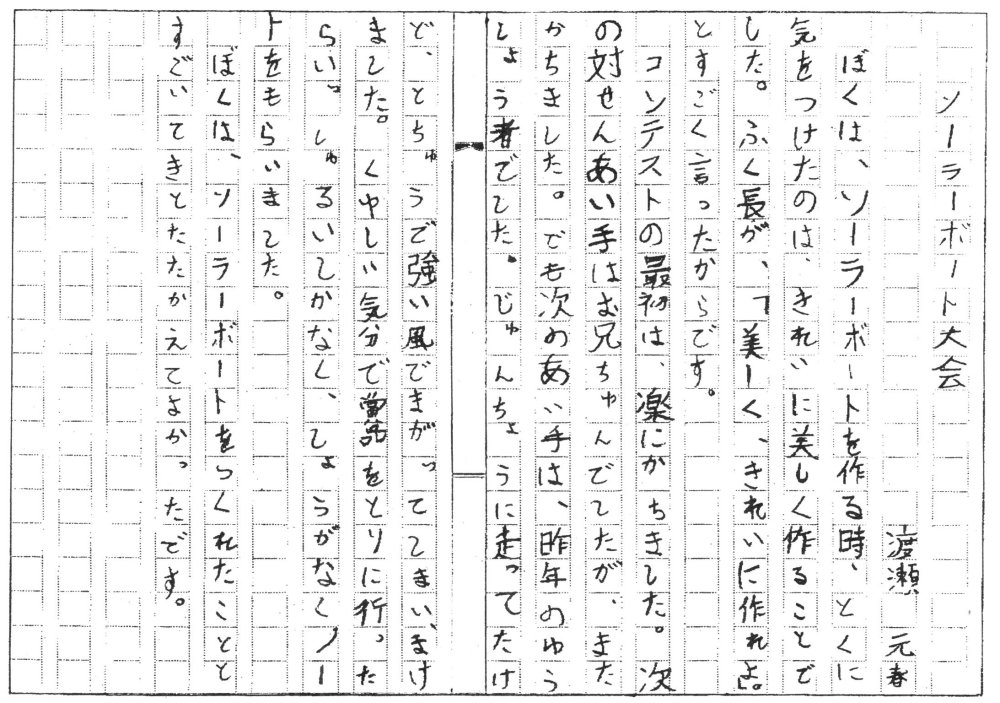 ソーラーボート大会
渡瀬 元春
ぼくは、ソーラーボートを作る時、とくに
気をつけたのは、きれいに美しく作ることで
した。ふく長が、「美しく、きれいに作れよ。」
とすごく言ったからです。
コンテストの最初は、楽にかちました。次
の対せんあい手はお兄ちゃんでしたが、また
かちました。でも次のあい手は、昨年のゆう
しょう者でした。じゅんちょうに走ってたけ
ど、とちゅうで強い風でまがってしまい、まけ
ました。くやしい気分で賞品をとりに行った
らいっしゅるいしかなく、しょうがなくノー
トをもらいました。
ぼくは、ソーラーボートをつくれたことと
すごいてきとたたかえてよかったです。